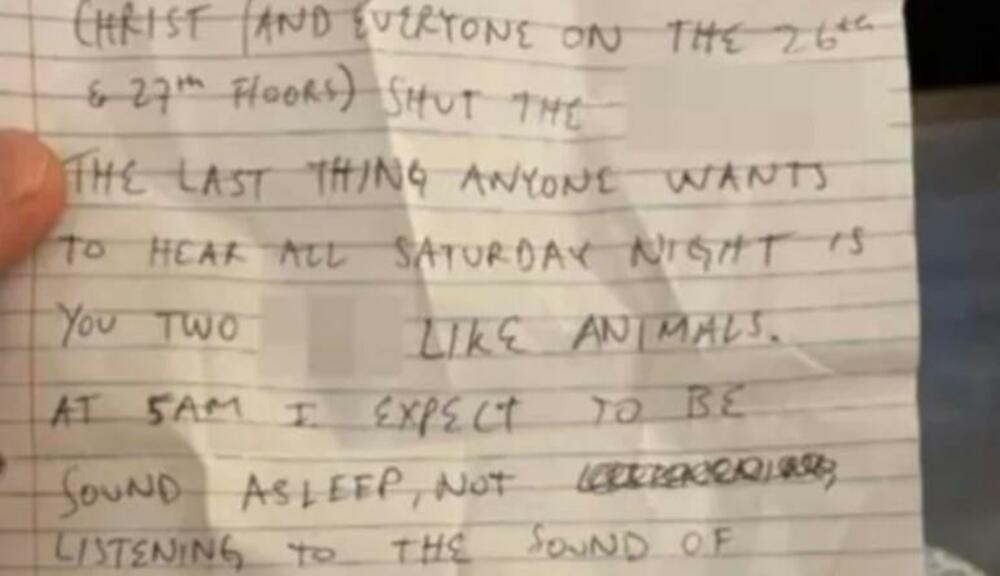 CHRIST (AND EVERYONE ON THE 26th
& 27th FLOORS) SHUT THE
THE LAST THING ANYONE WANTS
TO HEAR ALL SATURDAY NIGHT IS
YOU TWO LIKE ANIMALS.
AT 5AM I EXPECT TO BE
SOUND ASLEEP, NOT
LISTENING TO THE SOUND OF